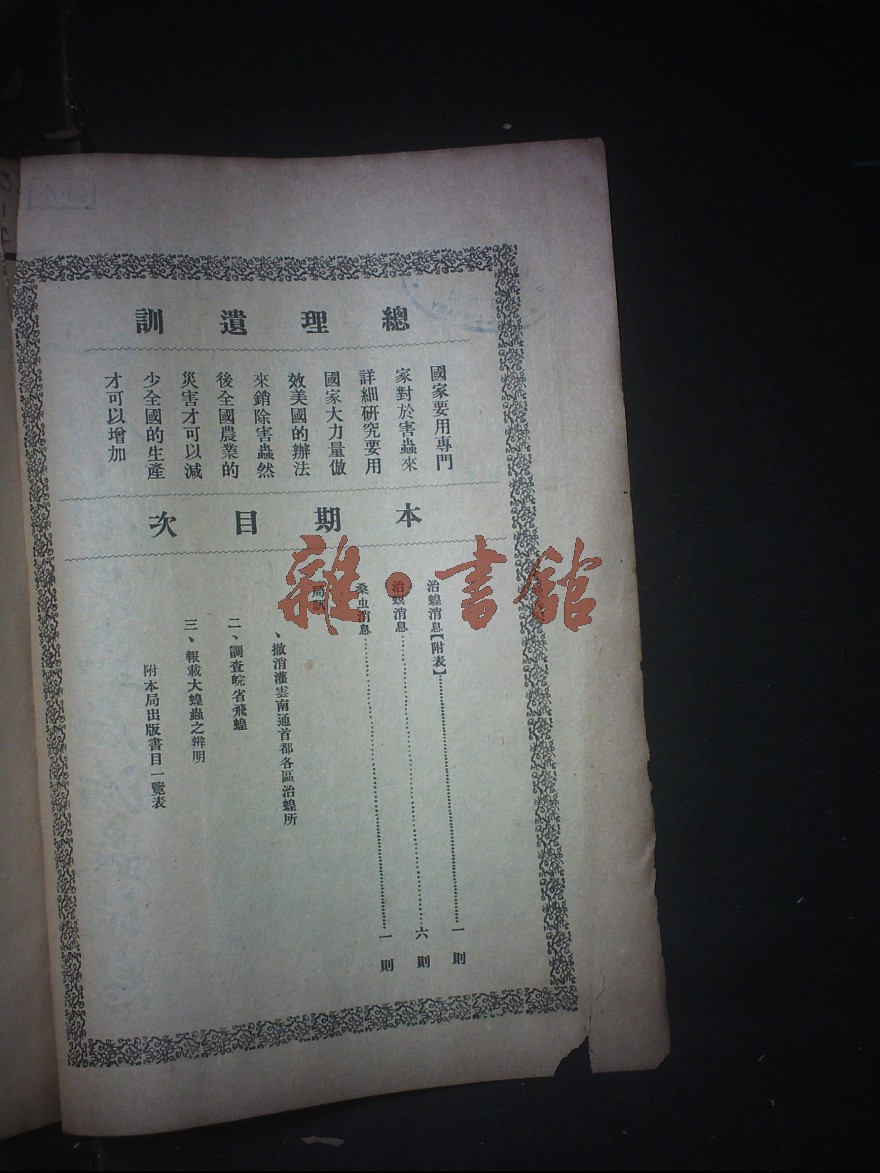 總理遺訓
國家要用專門
家對於害蟲來
詳細研究要用
國家大力量倣
效美國的辦法
來銷除害蟲然
後全國農業的
災害才可以減
少全國的生產
才可以增加
本期目次
治蝗消息【附表】一則
治螟消息六則
桑虫消息一則
局訊
、撤消灌雲南通首都各區治蝗所
二、調查皖省飛蝗
三、報載大蝗蟲之辨明
附本局出版書目一覽表
雜·書館